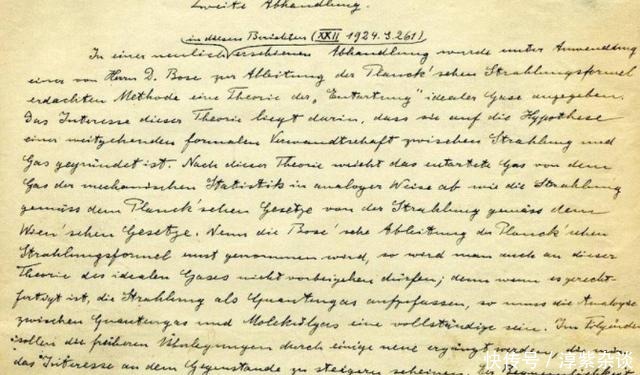 Zweite Abhandlung.
in diesen Berichten (XXII 1924. S. 261)
In einer neulich erschienen Abhandlung wurde unter Anwendung
einer von Herrn D. Bose zur Ableitung der Planck'schen Strahlungsformel
erdachten Methode eine Theorie der „Entartung" idealer Gase angegeben.
Das Interesse dieser Theorie liegt darin, dass sie auf die Hypothese
einer weitgehenden formalen Verwandtschaft zwischen Strahlung und
Gas gegründet ist. Nach dieser Theorie weicht das entartete Gas von dem
Gas der mechanischen Statistik in analoger Weise ab wie die Strahlung
gemäss dem Planck'schen Gesetze von der Strahlung gemäss dem
Wien'schen Gesetze. Wenn die Bose'sche Ableitung der Planck'schen
Strahlungsformel ernst genommen wird, so wird man auch an dieser
Theorie des idealen Gases nicht vorbeigehen dürfen; denn wenn es gerecht-
fertigt ist, die Strahlung als Quantengas aufzufassen, so muss die Analogie
zwischen Quantengas und Molekülgas eine vollständige sein. Im Folgenden
sollen die früheren Überlegungen durch einige neue ergänzt werden, die mir
das Interesse an dem Gegenstande zu steigern scheinen.
快传号 / 淳紫杂谈